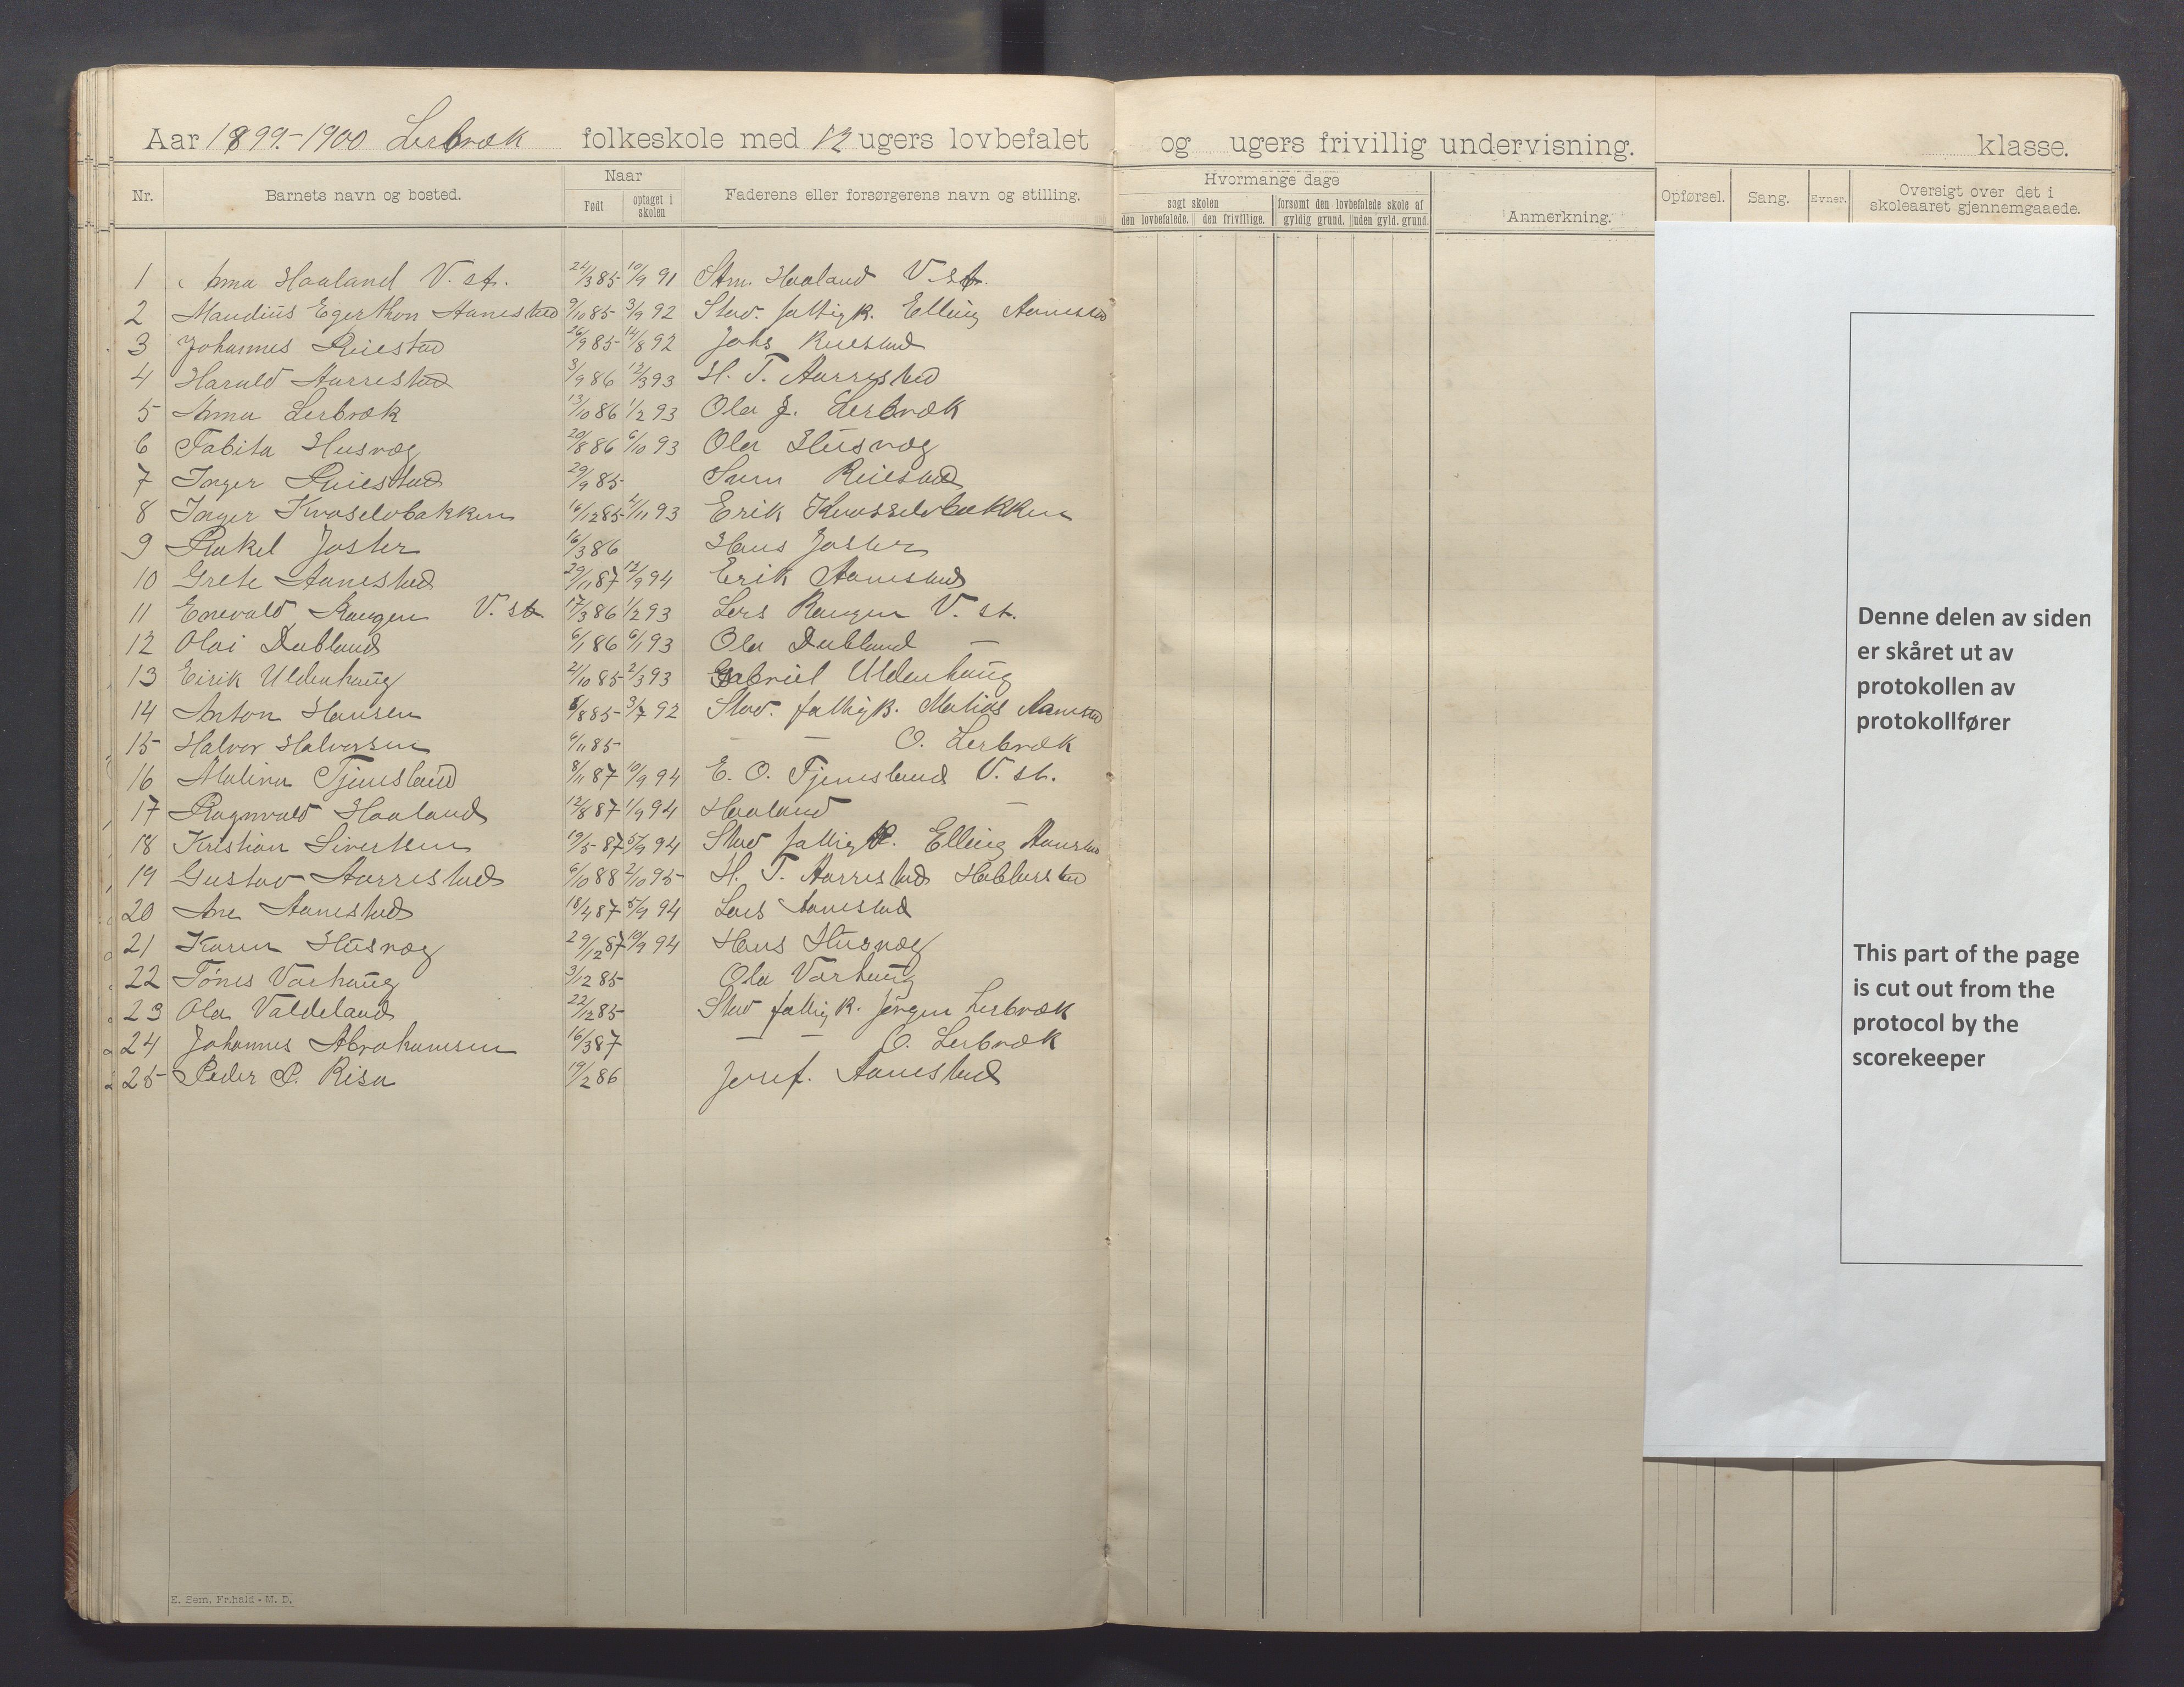 Aar 1899.-1900 Lerbræk folkeskole med 12 ugers lovbefalet og ugers frivillig undervisning. klasse.
Nr. Barnets navn og bosted. Naar Født optaget i skolen Faderens eller forsørgerens navn og stilling. Hvormange dage søgt skolen den lovbefalede. den frivillige. forsømt den lovbefalede skole af gyldig grund. uden gyld. grund. Anmerkning. Opførsel. Sang. Evner. Oversigt over det i skoleaaret gjennemgaaede.
1 Anna Haaland V. st. 24/3 85 10/9 91 Haaland V. st.
2 Maudius Egerthon Aanestad 9/10 85 3/9 92 Stav. fattigk. Elling Aanestad
3 Johannes Riiestad 26/9 85 14/8 92 Johs Riiestad
4 Harald Aarrestad 3/9 86 12/3 93 H. T. Aarrestad
5 Anna Lerbræk 13/10 86 1/2 93 Ola J. Lerbræk
6 Tabita Husvæg 20/8 86 6/10 93 Ola Husvæg
7 Inger Riiestad 29/9 85 Riiestad
8 Inger Kvaselvbakken 16/12 85 2/11 93 Erik Kvasselvbakken
9 Rakel Jaster 16/3 86 Hans Jaster
10 Grete Aanestad 29/11 87 12/9 94 Erik Aanestad
11 Enevald Haugen V. st. 17/3 86 1/2 93 Lars Haugen V. st.
12 Olai Dubland 6/1 86 6/1 93 Ola Dubland —
13 Eirik Uldenhaug 2/10 85 2/3 93 Gabriel Uldenhaug
14 Anton Hansen 6/8 85 3/7 92 Stav. fattigk. Matias Aanestad
15 Halvor Halvorsen 6/11 85 — — O. Lerbræk
16 Malina Tjemsland 8/11 87 10/9 94 E. O. Tjemsland V. st.
17 Ragnvald Haaland 12/8 87 1/9 94 Haaland —
18 Kristian Sivertsen 19/5 87 5/9 94 Stav fattigk. Elling Aanestad
19 Gustav Aarrestad 6/10 88 2/10 95 H. T. Aarrestad Hobberstad
20 Ane Aanestad 18/4 87 5/9 94 Lars Aanestad
21 Karen Husvæg 29/12 87 10/9 94 Hans Husvæg
22 Tónes Varhaug 3/12 85 Ola Varhaug
23 Ola Valdeland 22/12 85 Stav fattigk. Jørgen Lerbræk
24 Johannes Abrahamsen 16/3 87 — — O. Lerbræk
25 Peder P. Risa 19/2 86 Aanestad
E. Sem, Fr.hald - M. D.
Denne delen av siden
er skåret ut av
protokollen av
protokollfører
This part of the page
is cut out from the
protocol by the
scorekeeper